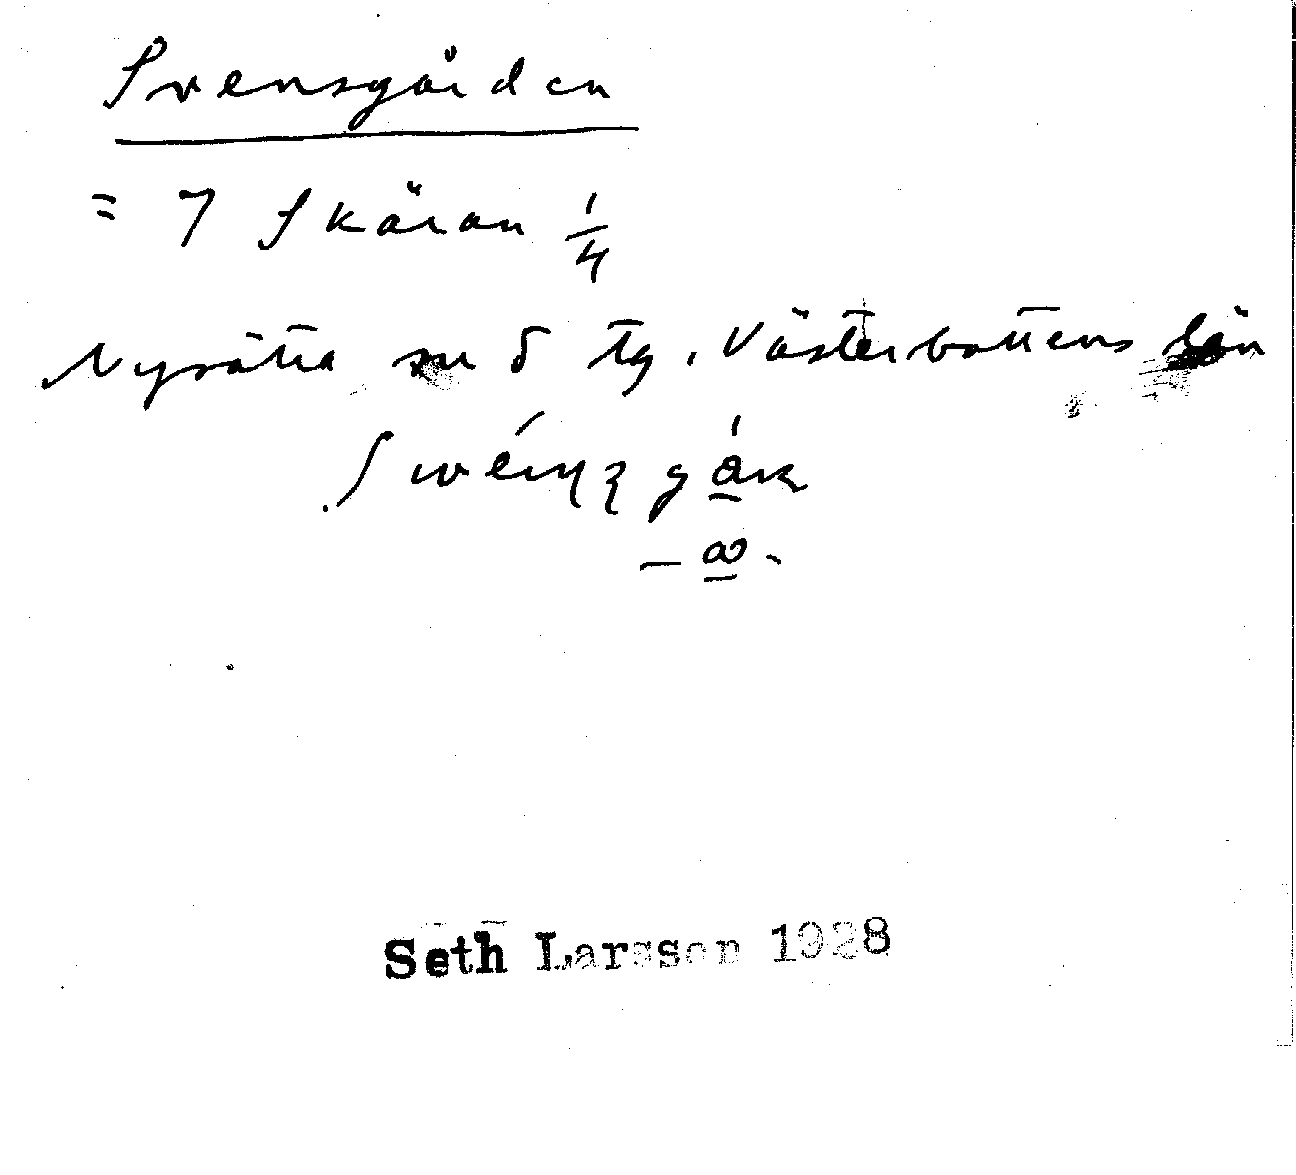 Svensgården
= 7 Skäran 1/4
Nysätra sn δ tg. Västerbottens län
Seth Larsson 1928